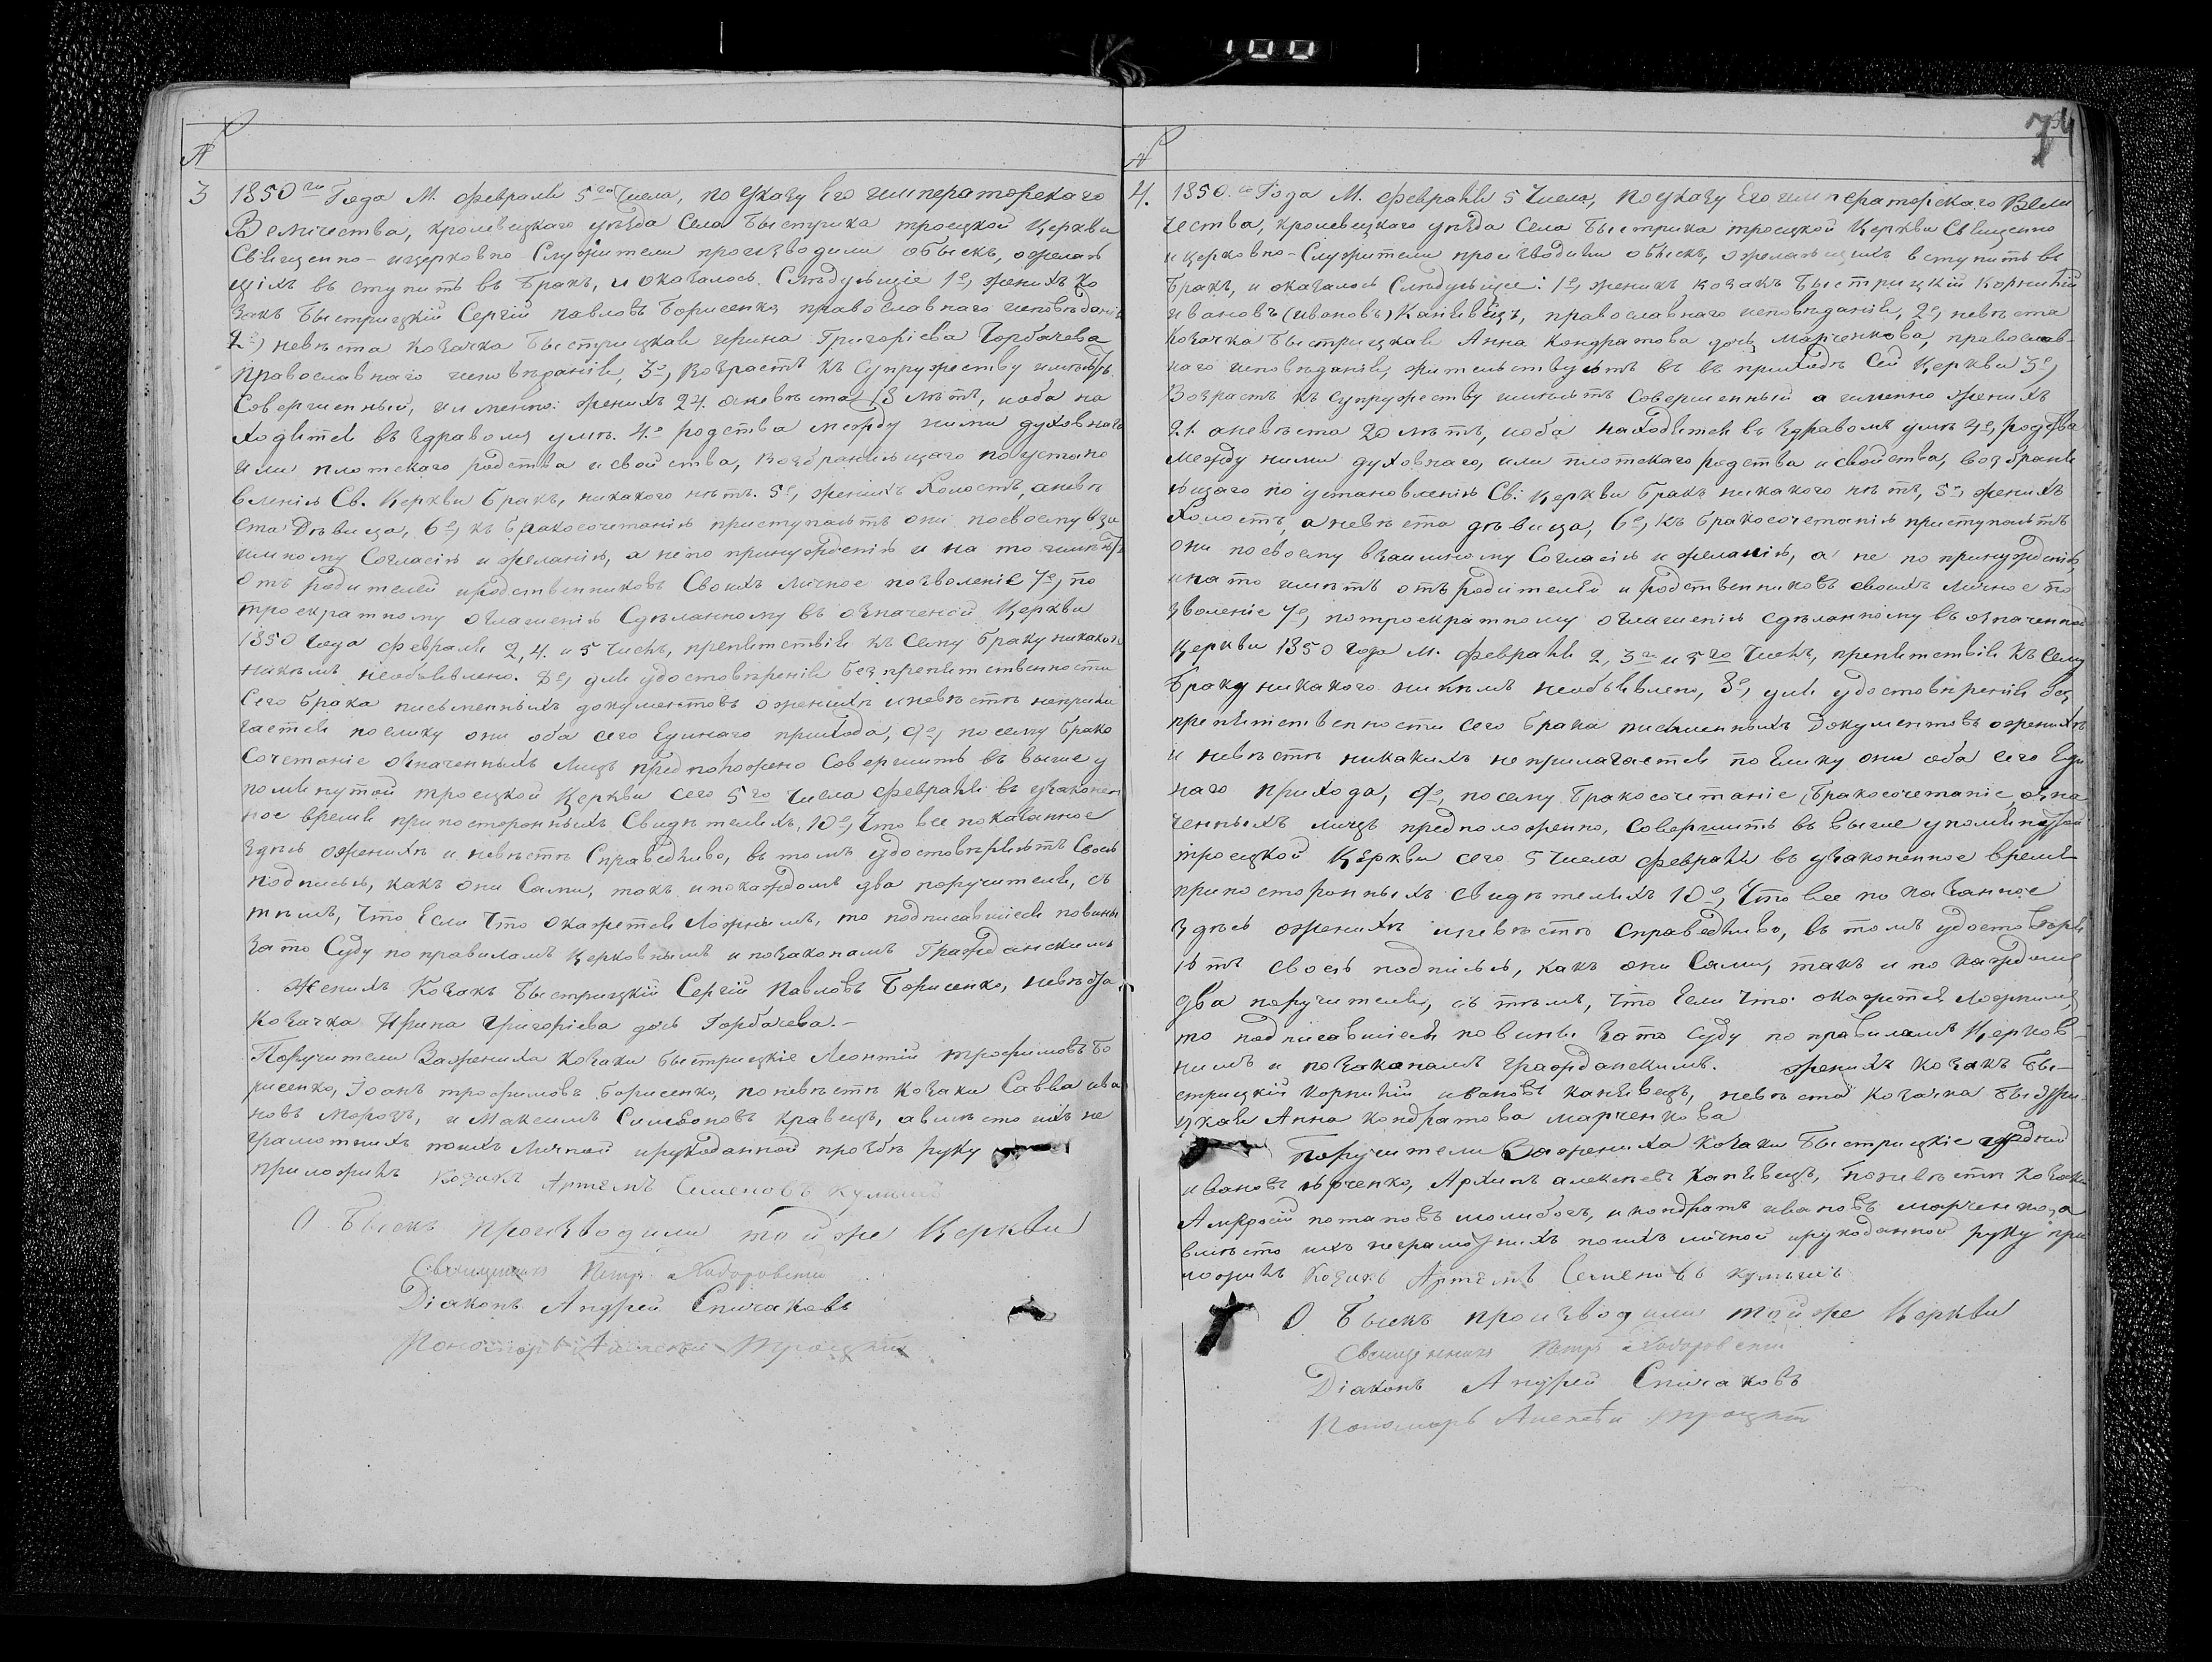 100
74
№
3 1850го Года М. февраля 5го Числа, по Указу Его императорскаго
Величества, кролевецкаго уѣзда Села быстрика троецкой Церкви
Священно-ицерковно Служители произъводили обыскъ, ожелаю
щихъ въ ступить въ бракъ, и оказалось. Слѣдующіе 1е, женихъ ко
закъ быстрицкій Сергій павловъ Борисенко православнаго исповѣданія
2е, невѣста козачка быстрицкая ирина Григоріева Горбачева
православнаго исповѣданія, 3е, Возрастъ къ Супружеству имѣютъ
Совершенный, именно: женихъ 24. аневѣста 18 лѣтъ, иоба на
ходятся въ здравомъ умѣ. 4е родства между ними духовнаго
или плотскаго родства исвойства, возбраняющаго поустано
вленію Св. Церкви бракъ, никакого нѣтъ. 5е, женихъ Холостъ, аневѣ
ста Дѣвица, 6е, къ бракосочетанію приступаютъ они посвоему вза
имному Согласію и желанію, а непо принужденію и на то имѣютъ
отъ родителей иродственниковъ Своихъ личное позволеніе 7е, по
троекратному оглашенію Сдѣланному въ означеной Церкви
1850 Года февраля 2, 4. и 5 Чиселъ, препятствія къ Сему браку никакого
никѣмъ необъявлено. 8е, для удостовѣренія безпрепятственности
Сего брака письменныхъ документовъ оженихѣ иневѣстѣ неприла
гается поелику они оба сего Единаго прихода, 9е, посему брако
Сочетаніе означенныхъ лицъ предположено Совершить въ выше у
помянутой троецкой Церкви сего 5го Числа февраля въ узаконен
ное время припостороннихъ Свидѣтеляхъ, 10е, Что все показанное
здѣсь оженихѣ и невѣстѣ Справедливо, въ томъ удостовѣряютъ Своею
подписью, какъ они Сами, такъ ипокаждомъ два поручителя, съ
тѣмъ, Что Если Что окажется Ложнымъ, то подписавшіеся повины
зато Суду поправиламъ Церковнымъ и позаконамъ Гражданскимъ
женихъ Козакъ быстрицкій Сергій Павловъ Борисенко, невѣста
Козачка Ирина Григоріева дочь Горбачева.-
Поручители Зажениха козаки быстрицкіе Леонтій трофимовъ Бо
рисенко, Іоанъ трофимовъ Борисенко, поневѣстѣ козаки Савва ива
новъ Морозъ, и Максимъ Симеоновъ кравецъ, авмѣсто ихъ не
грамотныхъ поихъ личной ирукоданной прозбѣ руку
приложилъ Козакъ Артемъ Семеновъ
О быскъ произъводили той же Церкви
Священникъ Петръ Ходоровскій
Діаконъ Андрей Спичаковъ
Пономарь Алексѣй Троецкій
№
4. 1850.го Года М. февраля 5 Числа, по указу Его императорскаго Вели
чества, кролевецкаго уѣзда Села быстрика троецкой Церкви Священно
и церковно-Служители произъводили обыскъ, ожелающихъ вступить въ
бракъ, и оказалось Слѣдующее: 1е, женихъ козакъ быстрицкій Корнилій
ивановъ (ивановъ) Каневецъ, православнаго исповѣданія, 2е, невѣста
козачка быстрицкая Анна Кондратова дочь марченкова, православ-
наго исповѣданія, жительствуютъ въ въ приходѣ Сей Церкви 3е,
Возрастъ къ Супружеству имѣютъ Совершенный а именно женихъ
21. аневѣста 20 лѣтъ, иоба находятся въ здравомъ умѣ 4е, родства
между ними духовнаго, или плотскаго родства исвойства, возбраня
ющаго поустановленію Св: Церкви бракъ никакого нѣтъ, 5е, женихъ
Холостъ, аневѣста дѣвица, 6е, къ бракосочетанію приступаютъ
они посвоему взаимному Согласію и желанію, а не по принужденію,
инато имѣютъ отъ родителей и родственниковъ своихъ личное по
зволеніе 7е, потроекратному оглашенію сдѣланному въ означенной
Церкви 1850 года м. февраля 2, 3го и 5го Чиселъ, препятствія къ Сему
браку никакого никѣмъ необъявлено, 8е, для удостовѣренія без
препятственности сего брака писменныхъ документовъ оженихѣ
и невѣстѣ никакихъ неприлагается поелику они оба сего Еди
наго прихода, 9е, посему бракосочетаніе, бракосочетаніе озна
ченныхъ лицъ предположенно, совершить въ выше упомянутой
троецкой Церкви сего 5 числа февраля въ узаконенное время
припостороннихъ свидѣтеляхъ 10е, Что все показанное
здѣсь оженихѣ иневѣстѣ справедливо, въ томъ удостовѣря
ютъ своею подписью, какъ они Сами, такъ и по каждому
два поручителя, съ тѣмъ, что Если Что окажется ложнымъ,
то подписавшіеся повины зато Суду по правиламъ Церков-
нымъ и позаконамъ гражданскимъ. женихъ козакъ бы-
стрицкій корнилій ивановъ каневецъ, невѣста козачка быстри-
цкая Анна кондратова марченкова
Поручители Зажениха козаки быстрицкіе
ивановъ юрченко, Архипъ алексѣевъ каневецъ, поневѣстѣ козаки
Амвросій потаповъ молибогъ, и кондратъ ивановъ марченко, а
вмѣсто ихъ неграмотныхъ поихъ личной ирукоданной руку при
ложилъ Козакъ Артемъ Семеновъ
О быскъ произъводили тойже Церкви
Священникъ Петръ Ходоровскій
Діаконъ Андрей Спичаковъ
Пономарь Алексѣй Троецкій